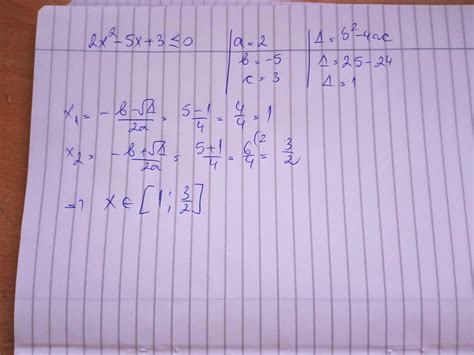 2x²-5x+3≤0 | a=2 | Δ=b²-4ac
b=-5 | Δ=25-24
c=3 | Δ=1
x₁= -b-√Δ/2a = 5-1/4 = 4/4 = 1
x₂= -b+√Δ/2a = 5+1/4 = 6/4 (2 = 3/2
=> x∈[1; 3/2]